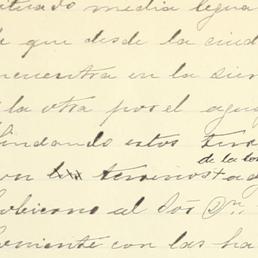 situado media legua
de que desde la ciud
encuentra en la sier
y la otra por el agu
lindando estos terre
de la lo
con terrenos + ad
Gobierno al Sór Dn
Poniente con las ha